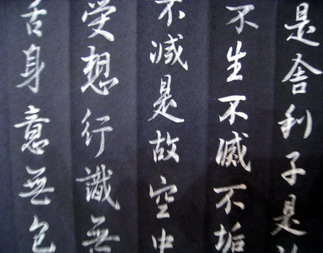 是舍利子是
不生不滅不垢
不減是故空中
受想行識無
舌身意無色